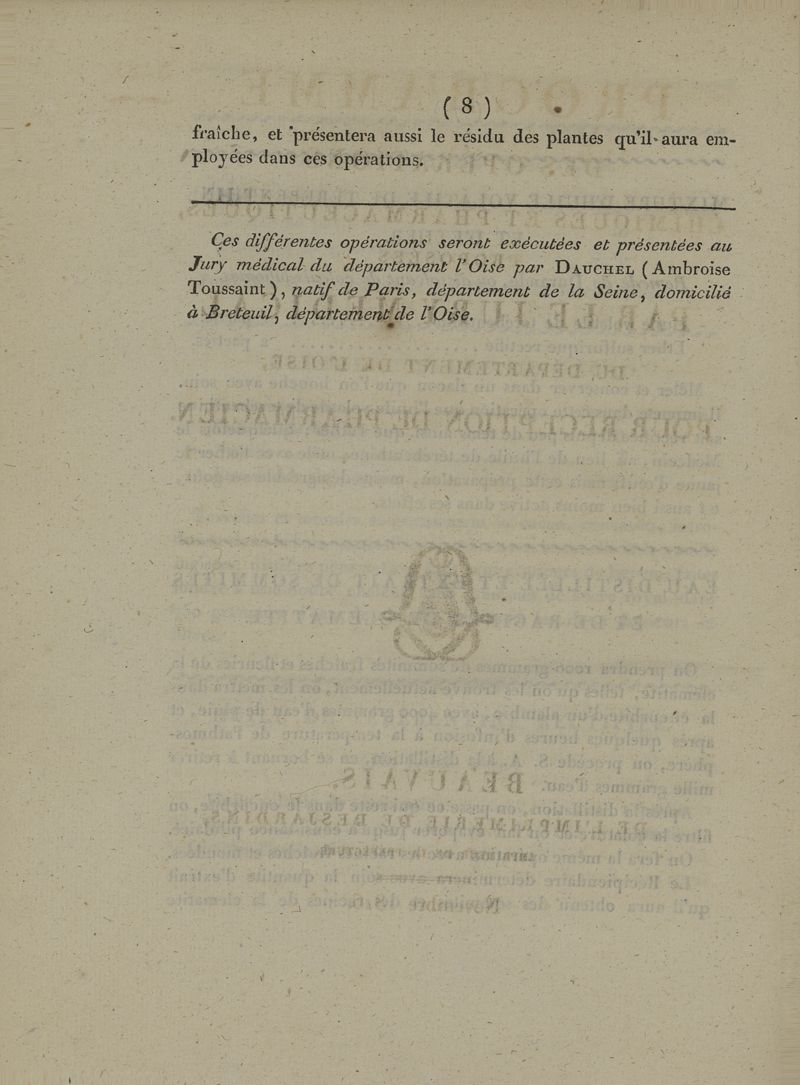 ( 8 )
fraîche, et présentera aussi le résidu des plantes qu'il aura em-
ployées dans ces opérations.
Ces différentes opérations seront exécutées et présentées au
Jury médical du département l'Oise par DAUCHEL (Ambroise
Toussaint), natif de Paris, département de la Seine, domicilié
à Breteuil, département de l'Oise.